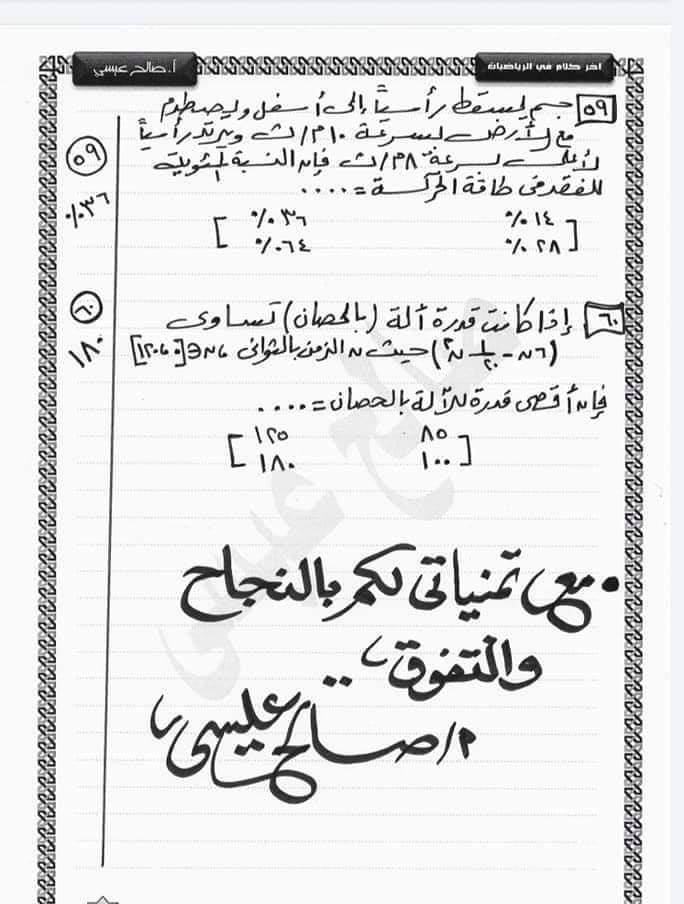 آخر كلام في الرياضيات
أ. صالح عيسى
٥٩ جسم يسقط رأسياً إلى أسفل وليصطدم
مع الأرض بسرعة ١٠ م/ث ويرتد رأسياً
لأعلى بسرعة ٨ م/ث فإن النسبة المئوية
للفقد فى طاقة الحركة = ....
[ ١٤ ٪ ٣٦ ٪
٢٨ ٪ ٦٤ ٪ ]
٥٩
٣٦ ٪
٦٠ إذا كانت قدرة آلة (بالحصان) تساوى
(٦ن - ١/٢٠ ن²) حيث ن الزمن بالثوانى ن ∈ [٠، ١٢٠]
فإن أقصى قدرة للآلة بالحصان = ....
[ ٨٥ ١٢٥
١٠٠ ١٨٠ ]
٦٠
١٨٠
• مع تمنياتى لكم بالنجاح
والتفوق ..
م/ صالح عيسى
صالح عيسى